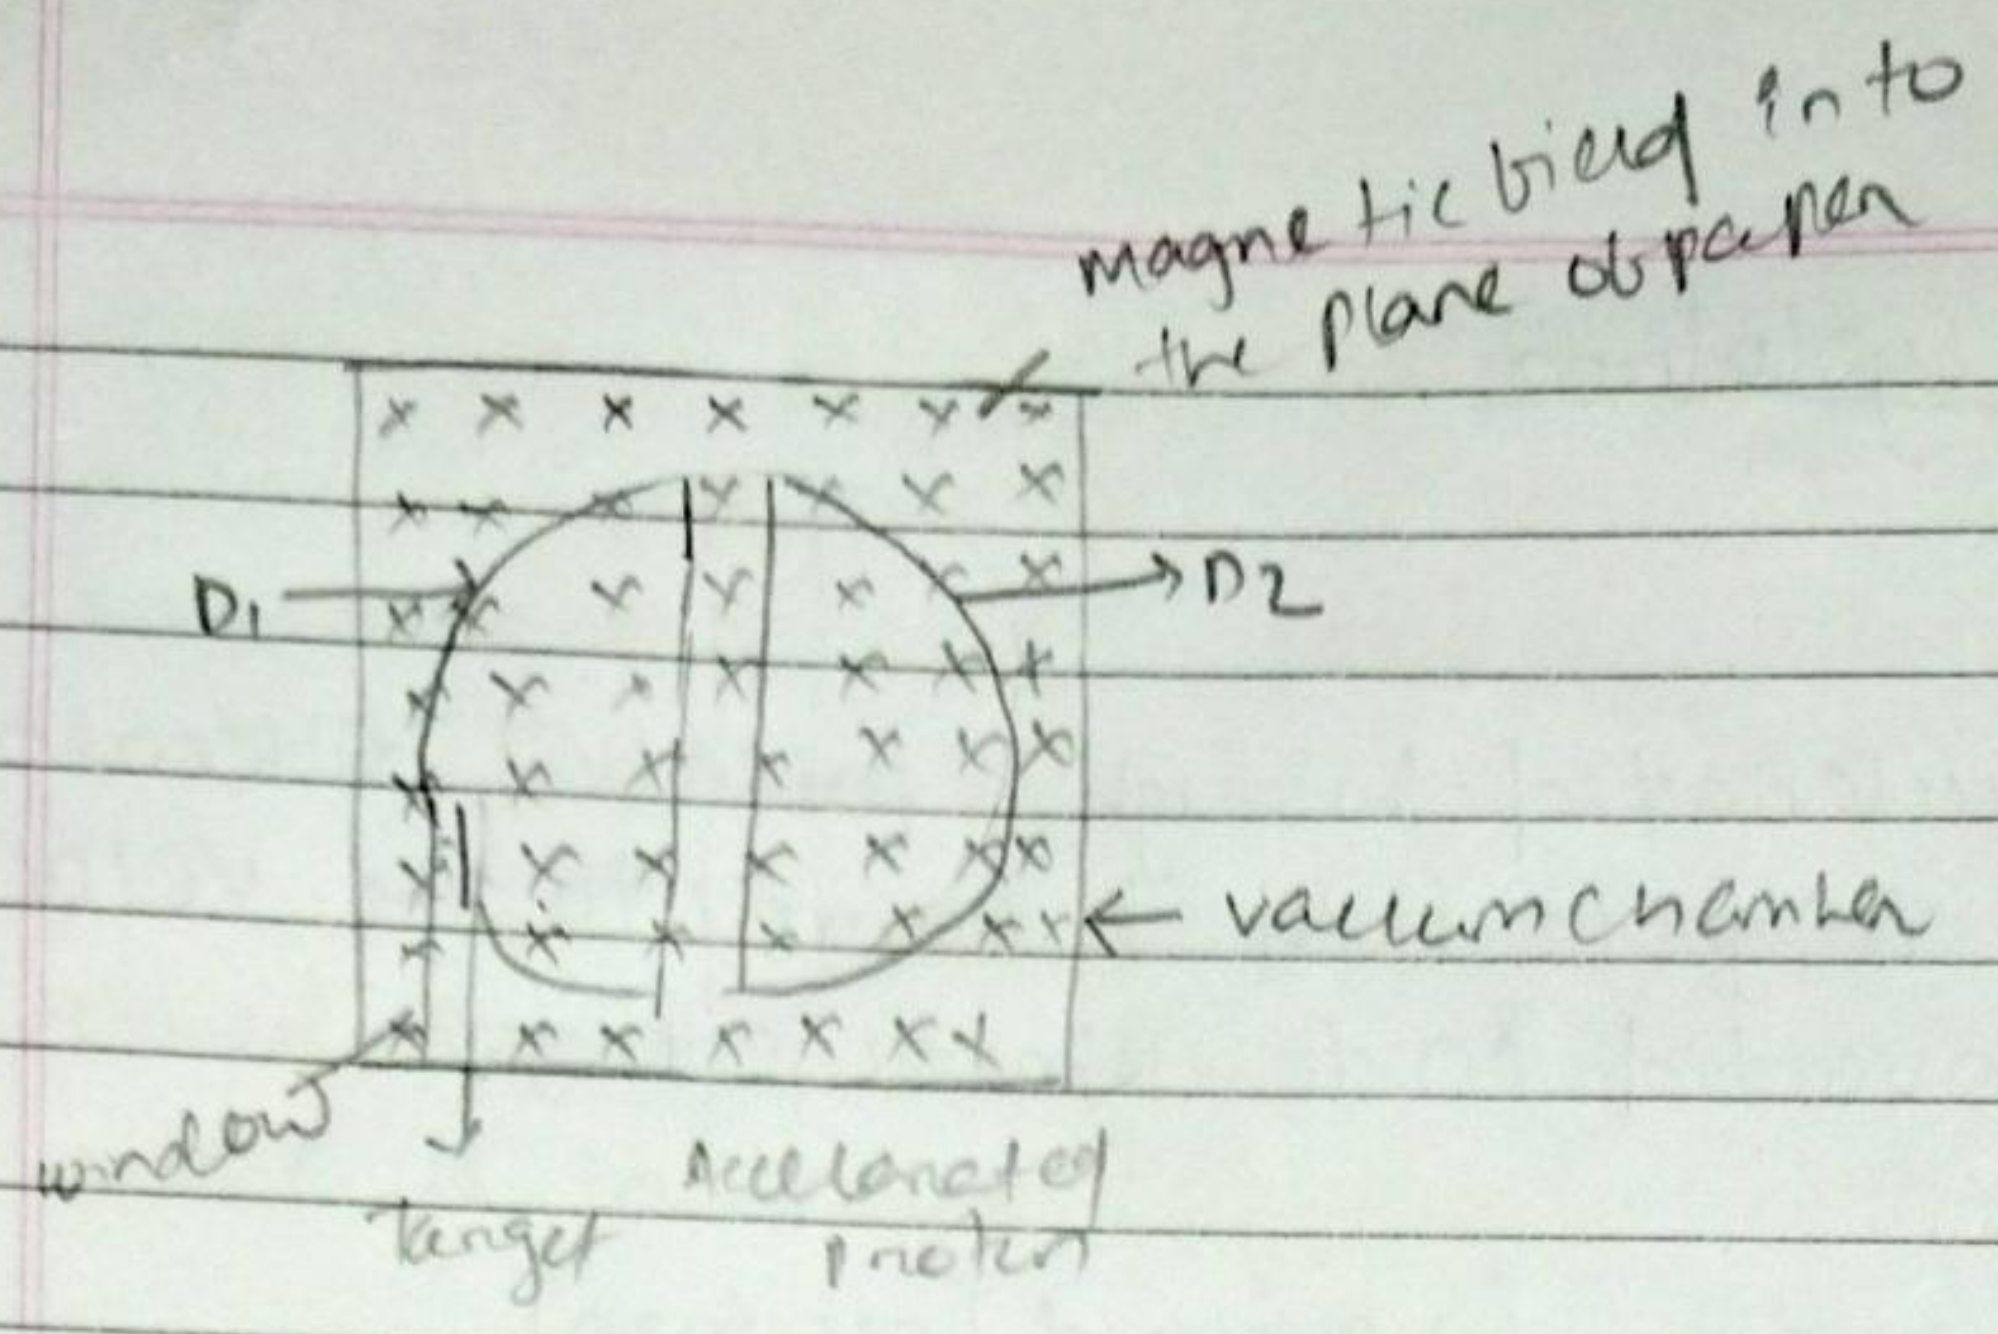 magnetic field into
the plane of paper
D1
D2
vacuum chamber
window
Target
Accelerated
proton